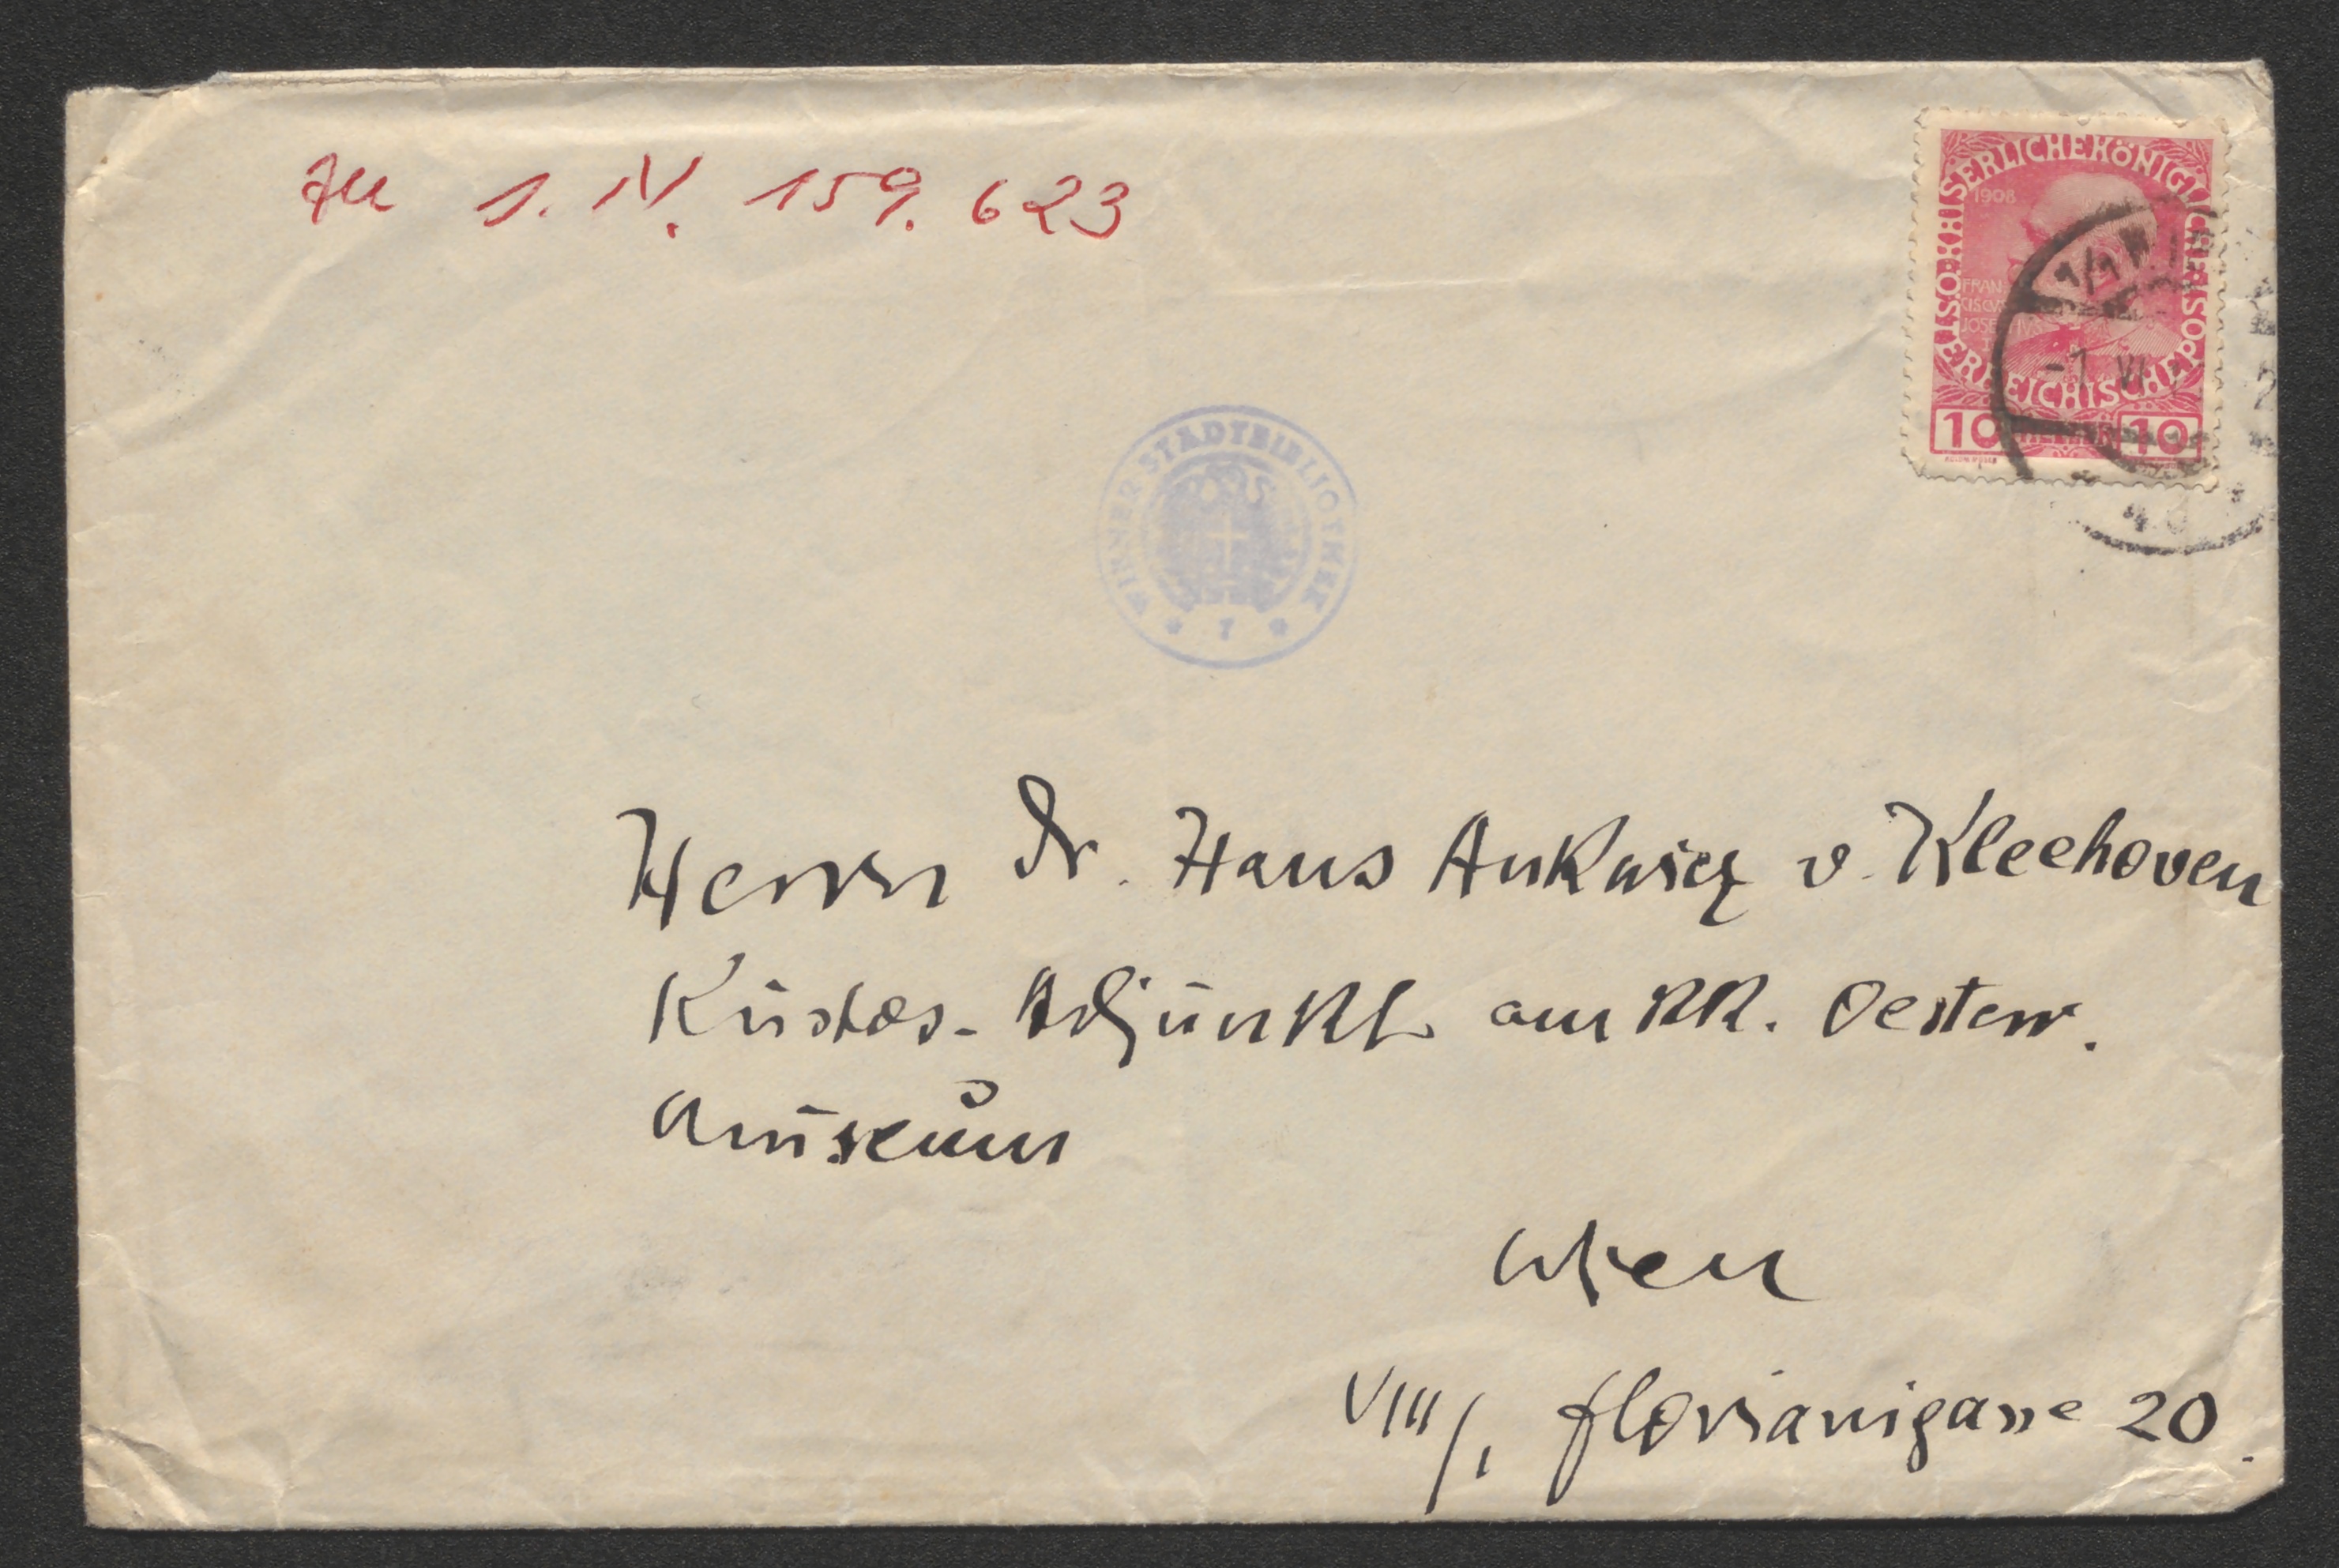 zu I. N. 159.623
KAISERLICHE KÖNIGLICHE
ÖSTERREICHISCHE POST
1908
FRAN
CISCVS
JOSEPHVS
10 HELLER 10
WIENER STADTBIBLIOTHEK
* 7 *
Herrn Dr. Hans Ankwicz v. Kleehoven
Kustos-Adjunkt am KK. Oesterr.
Museum
Wien
VIII/1 Florianigasse 20.